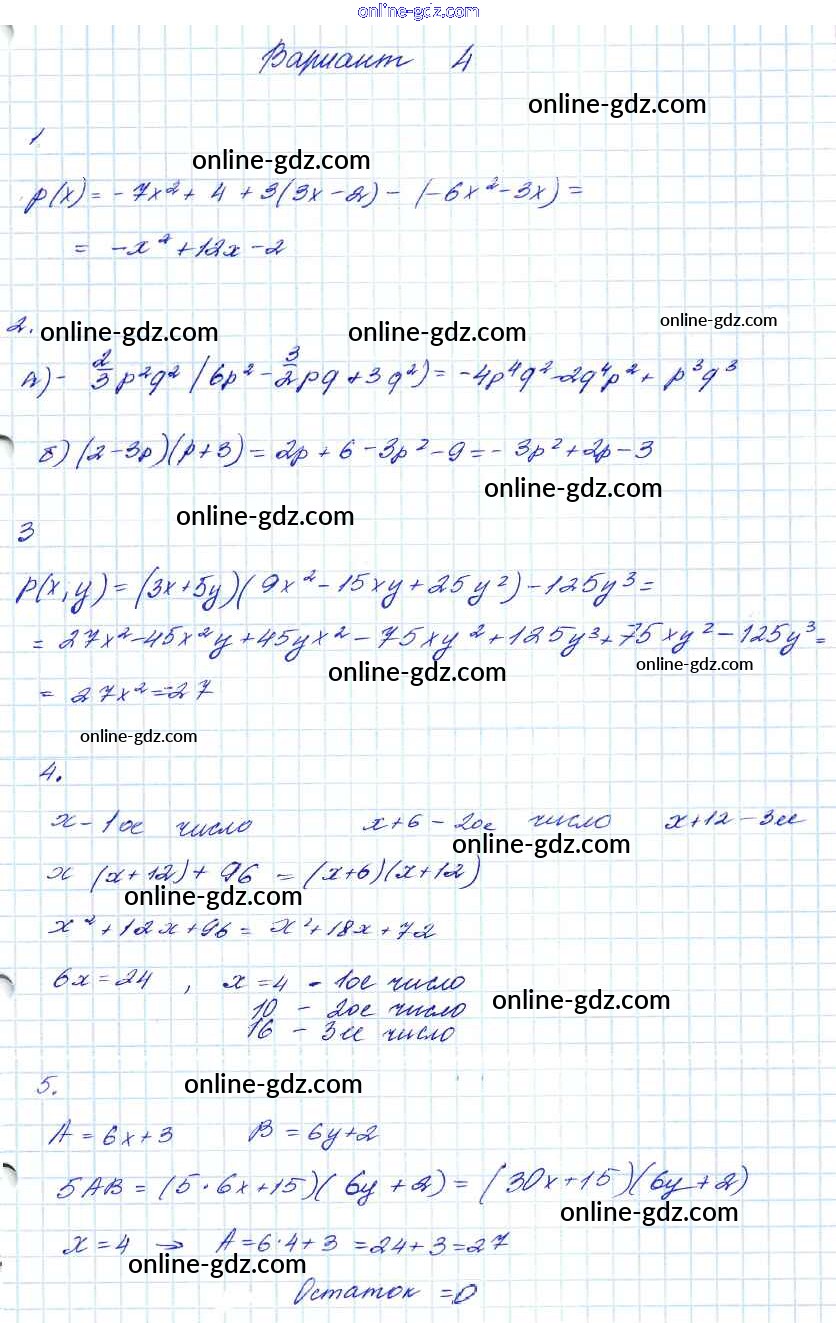 online-gdz.com
Вариант 4
online-gdz.com
1
online-gdz.com
p(x) = - 7x² + 4 + 3(3x - 2) - (-6x² - 3x) =
= -x² + 12x - 2
2.
online-gdz.com online-gdz.com online-gdz.com
а) - 2/3 p²q² (6p² - 3/2 pq + 3q²) = -4p⁴q² - 2q⁴p² + p³q³
б) (2 - 3p)(p + 3) = 2p + 6 - 3p² - 9 = - 3p² + 2p - 3
online-gdz.com
online-gdz.com
3
p(x, y) = (3x + 5y)(9x² - 15xy + 25y²) - 125y³ =
= 27x² - 45x²y + 45yx² - 75xy² + 125y³ + 75xy² - 125y³ =
online-gdz.com online-gdz.com
= 27x² = -27
online-gdz.com
4.
x - 1ое число x + 6 - 2ое число x + 12 - 3ее
online-gdz.com
x (x + 12) + 96 = (x + 6)(x + 12)
online-gdz.com
x² + 12x + 96 = x² + 18x + 72
6x = 24 , x = 4 - 1ое число
online-gdz.com
10 - 2ое число
16 - 3ее число
5.
online-gdz.com
A = 6x + 3 B = 6y + 2
5AB = (5 · 6x + 15)(6y + 2) = (30x + 15)(6y + 2)
online-gdz.com
x = 4 → A = 6 · 4 + 3 = 24 + 3 = 27
online-gdz.com
Остаток = 0